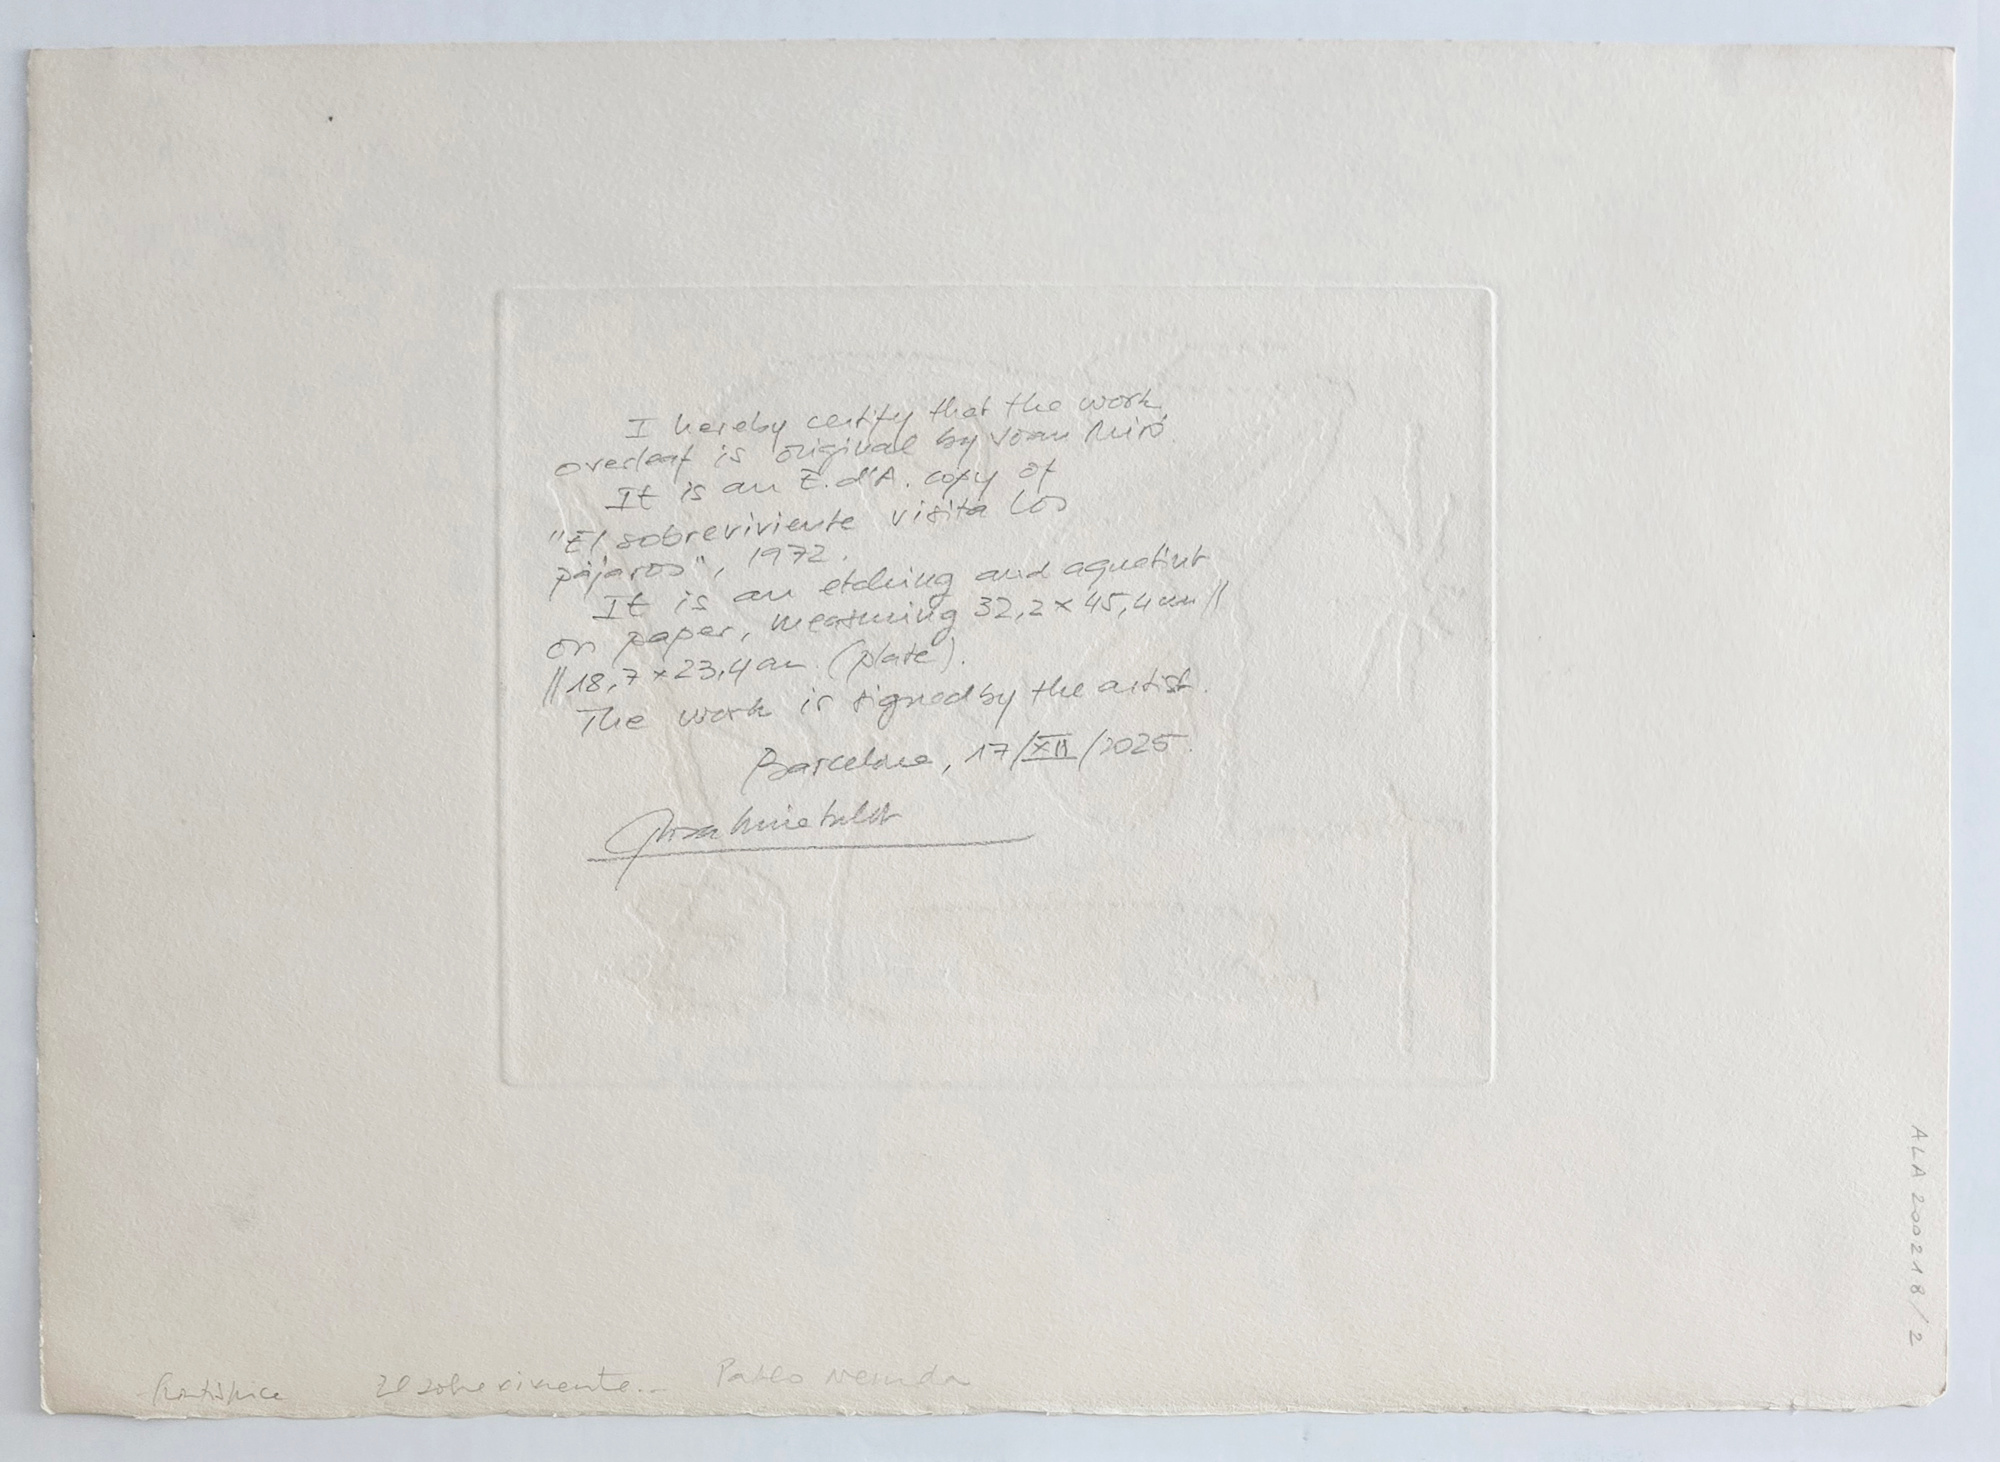 I hereby certify that the work
overleaf is original by Joan Miró.
It is an E.d'A. copy of
"El sobreviviente visita los
pájaros", 1972.
It is an etching and aquatint
on paper, measuring 32,2 x 45,4 cm //
// 18,7 x 23,4 cm (plate).
The work is signed by the artist.
Barcelona, 17/XII/2025.
frontispice El sobreviviente... Pablo Neruda
ALA 200218/2